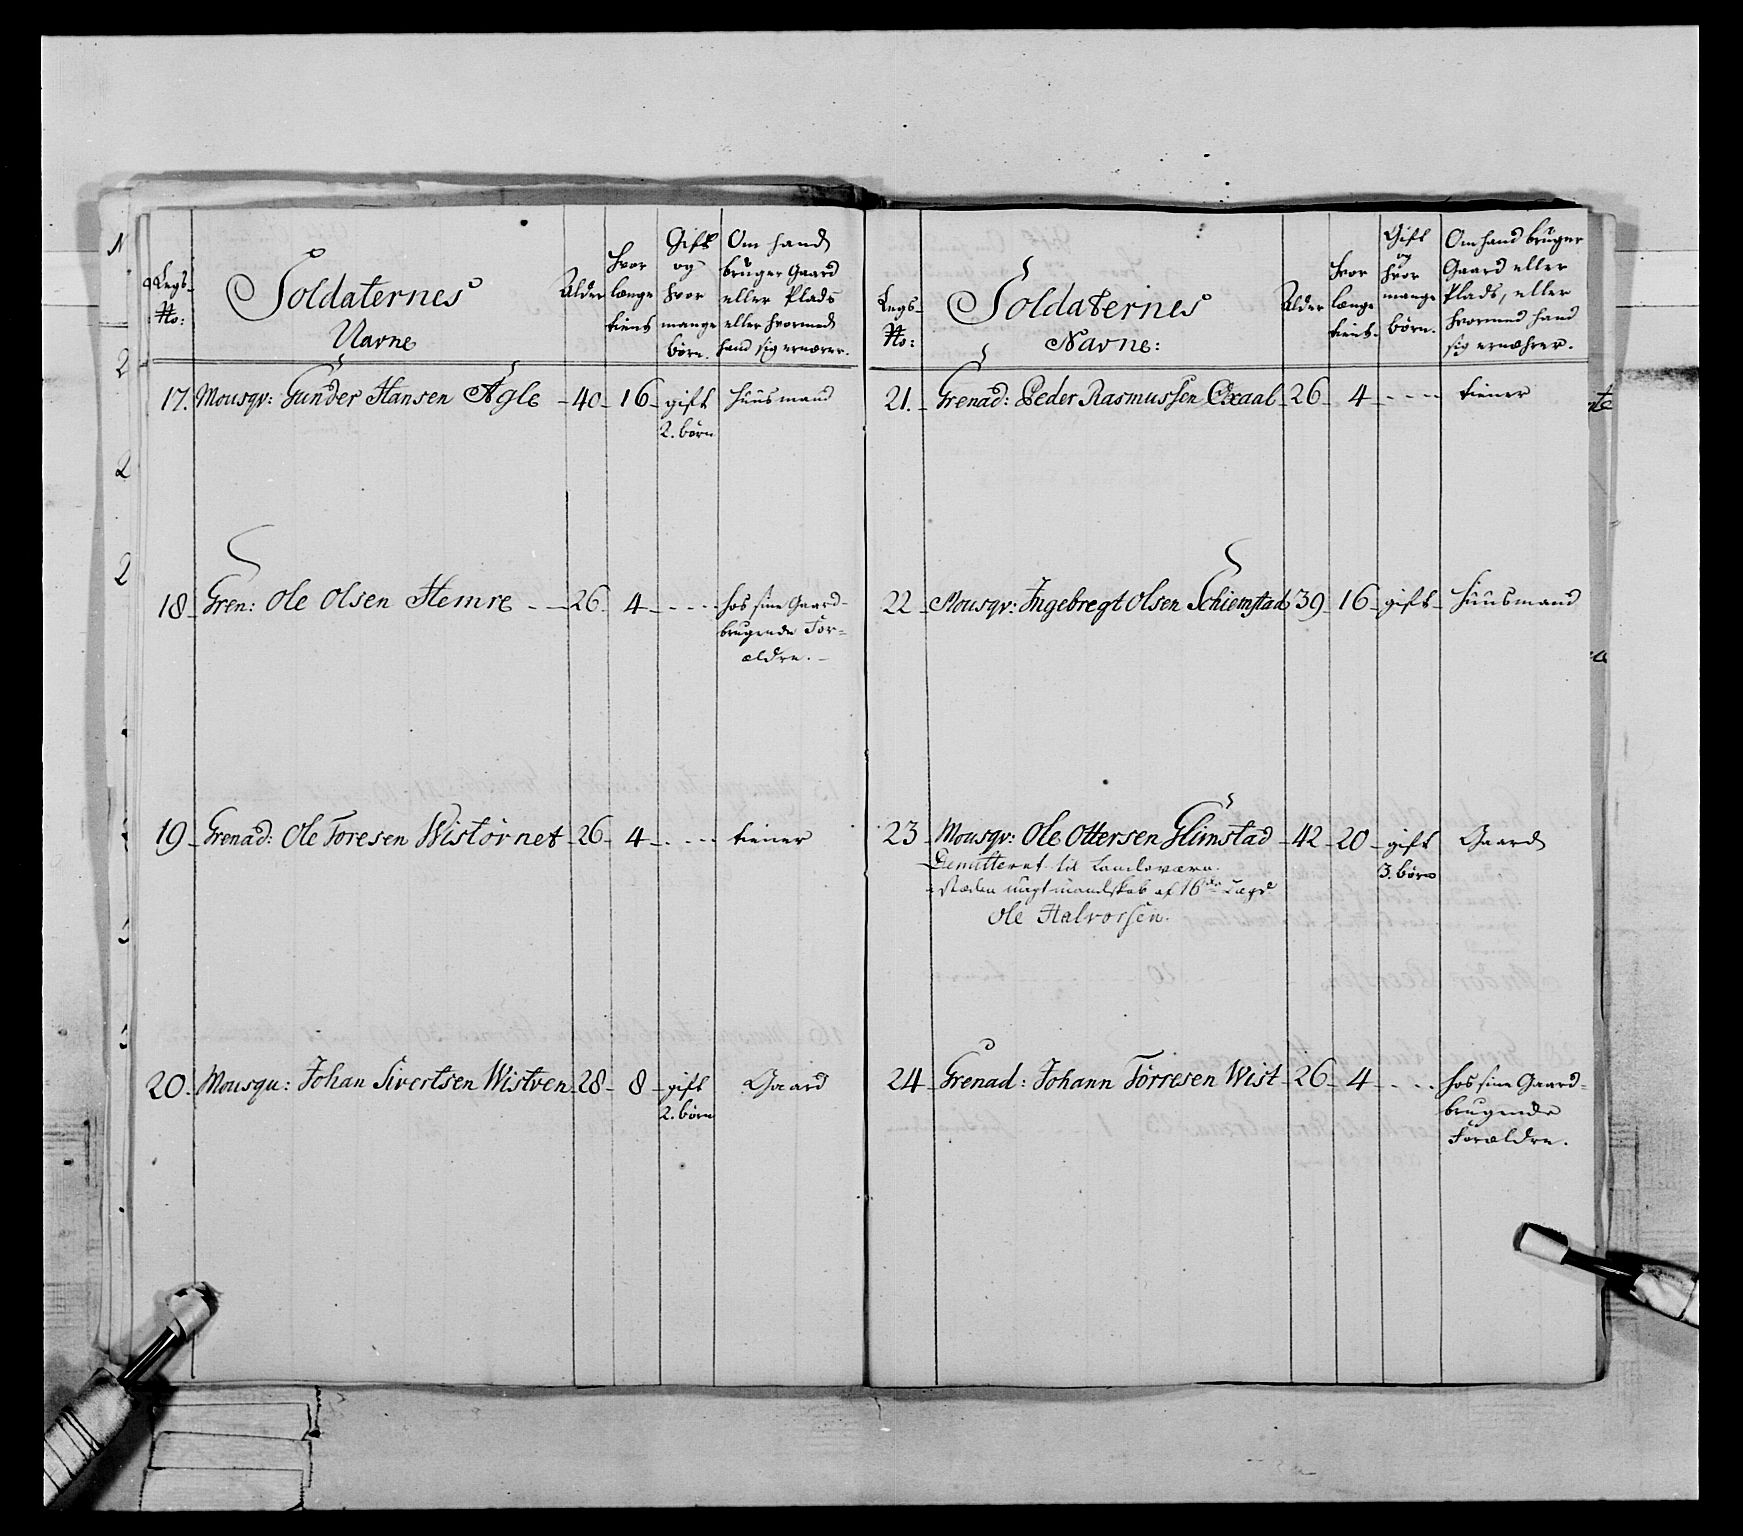 Legs No: | Soldaternes Navne | Alder | hvor længe tient | Gift og hvor mange börn. | Om hand bruger Gaard eller Plads eller hvormed hand sig ernærer.
17. Mousqv: Gunder Hansen Agle – 40 – 16 – gift 2. börn | Huusmand
18 – Gren: Ole Olsen Hemre – 26 – 4 – - - - | hos sine Gaard-
brugende For-
ældre. –
19 – Grenad: Ole Toresen Wistörnet – 26 – 4 – - - - | tiener
20. Mousqu: Johan Sivertsen Wistven – 28 – 8 – gift 2. börn | Gaard
Legs No: | Soldaternes Navne: | Alder | hvor længe tient. | Gift og hvor mange börn. | Om hand bruger Gaard eller Plads, eller hvormed hand sig ernæhrer.
21. Grenad: Peder Rasmussen – 26 – 4 – - - - | tiener
22 – Mousqv: Ingebregt Olsen Schiemstad 39 – 16 – gift – Huusmand
23 – Mousqv: Ole Ottersen Glimstad – 42 – 20 – gift 3. börn | Gaard
Demitteret til Landeværn.
i steden mandskab af 16de Lægd
Ole Halvorsen.
24 – Grenad: Johann Törresen Wist – 26 – 4 – - - - | hos sine Gaard-
brugende
Forældre.